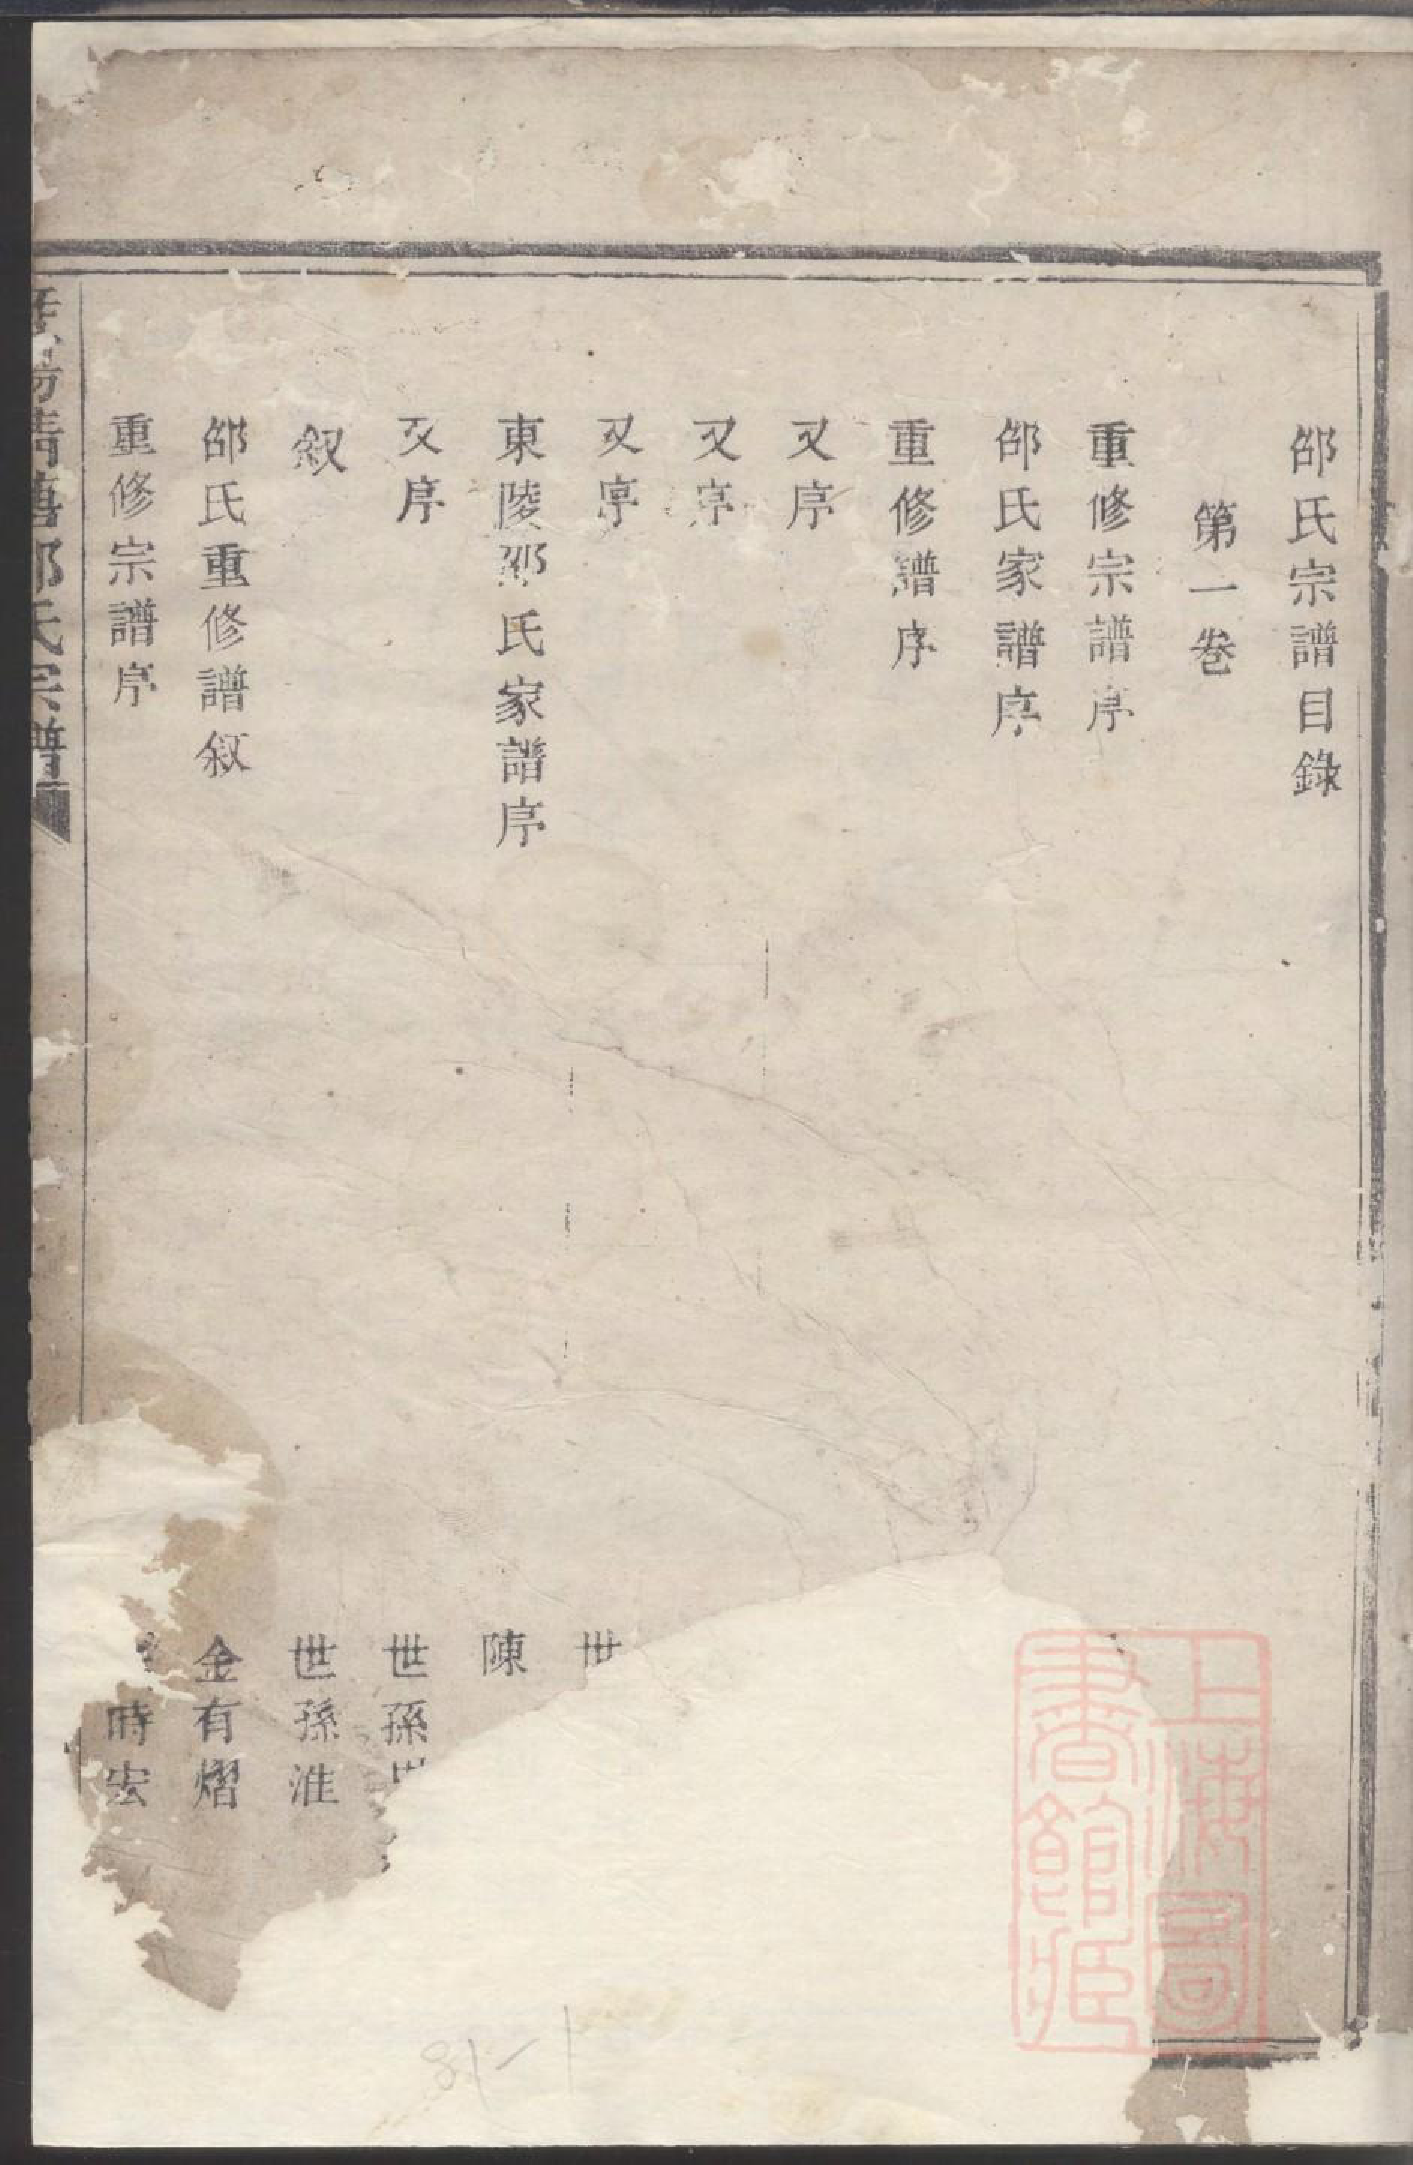 邵氏宗譜目錄
第一卷
重修宗譜序
邵氏家譜序
重修譜序
又序
又序
又序 世
東陵邵氏家譜序 陳
又序 世孫
叙 世孫淮
邵氏重修譜叙 金有熠
重修宗譜序 時宏
邵氏宗譜
上海圖書館藏
81-1